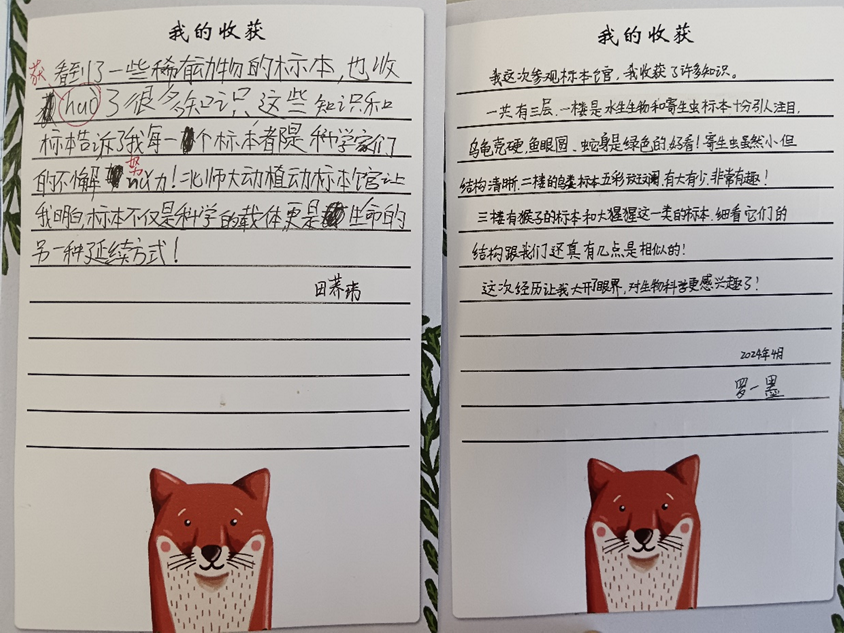 我的收获
看到了一些稀有动物的标本,也收
获
huò了很多知识,这些知识和
标本告诉了我每一个标本都是科学家们
努
的不懈 力!北师大动植动标本馆让
我明白,标本不仅是科学的载体更是生命的
另一种延续方式!
田荞
我的收获
我这次参观标本官,我收获了许多知识。
一共有三层.一楼是水生生物和寄生虫标本十分引人注目,
乌龟壳硬,鱼眼圆、蛇身是绿色的,好看!寄生虫虽然小但
结构清晰.二楼的鸟类标本五彩斑斓,有大有少,非常有趣!
三楼有猴子的标本和大猩猩这一类的标本.细看它们的
结构跟我们还真有几点是相似的!
这次经历让我大开了眼界,对生物科学更感兴趣了!
2024年4月
罗一墨